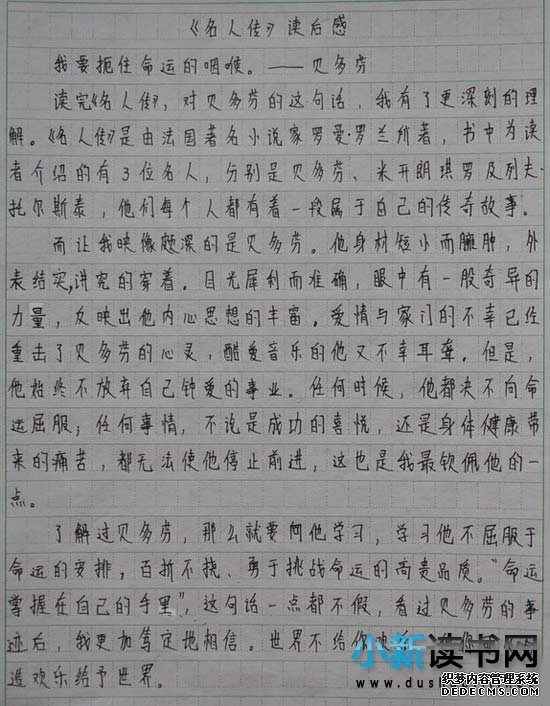 《名人传》读后感
我要扼住命运的咽喉。——贝多芬
读完《名人传》，对贝多芬的这句话，我有了更深刻的理
解。《名人传》是由法国著名小说家罗曼·罗兰所著，书中为读
者介绍的有3位名人，分别是贝多芬、米开朗琪罗及列夫·
托尔斯泰，他们每个人都有着一段属于自己的传奇故事。
而让我映像颇深的是贝多芬。他身材短小而臃肿，外
表结实,讲究的穿着。目光犀利而准确，眼中有一股奇异的
力量，反映出他内心思想的丰富。爱情与家门的不幸已经
重击了贝多芬的心灵，酷爱音乐的他又不幸耳聋。但是，
他始终不放弃自己钟爱的事业。任何时候，他都决不向命
运屈服；任何事情，不说是成功的喜悦，还是身体健康带
来的痛苦，都无法使他停止前进，这也是我最钦佩他的一
点。
了解过贝多芬，那么就要向他学习，学习他不屈服于
命运的安排，百折不挠、勇于挑战命运的高贵品质。“命运
掌握在自己的手里”，这句话一点都不假，看过贝多芬的事
迹后，我更加笃定地相信。世界不给你欢乐，你
造欢乐给予世界。
小新读书网
www.dus
织梦内容管理系统
DEDECMS.COM